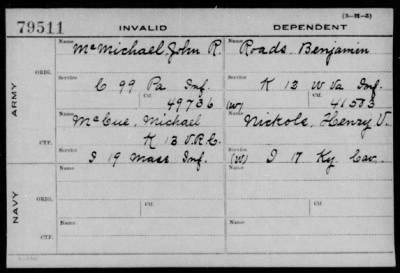 79511
INVALID
DEPENDENT
(3-M-3)
Name McMichael, John R.
Name Roads, Benjamin
ARMY
ORIG.
Service C 99 Pa Inf.
Service K 12 W Va Inf.
Ctf. 49736
(W) Ctf. 41503
Name McCue, Michael
Name Nickols, Henry V.
CTF.
K 13 V.R.C.
Service I 19 Mass Inf.
Service (W) I 17 Ky. Cav.
NAVY
ORIG.
Name
Ctf.
Name
Ctf.
CTF.
Name
Name